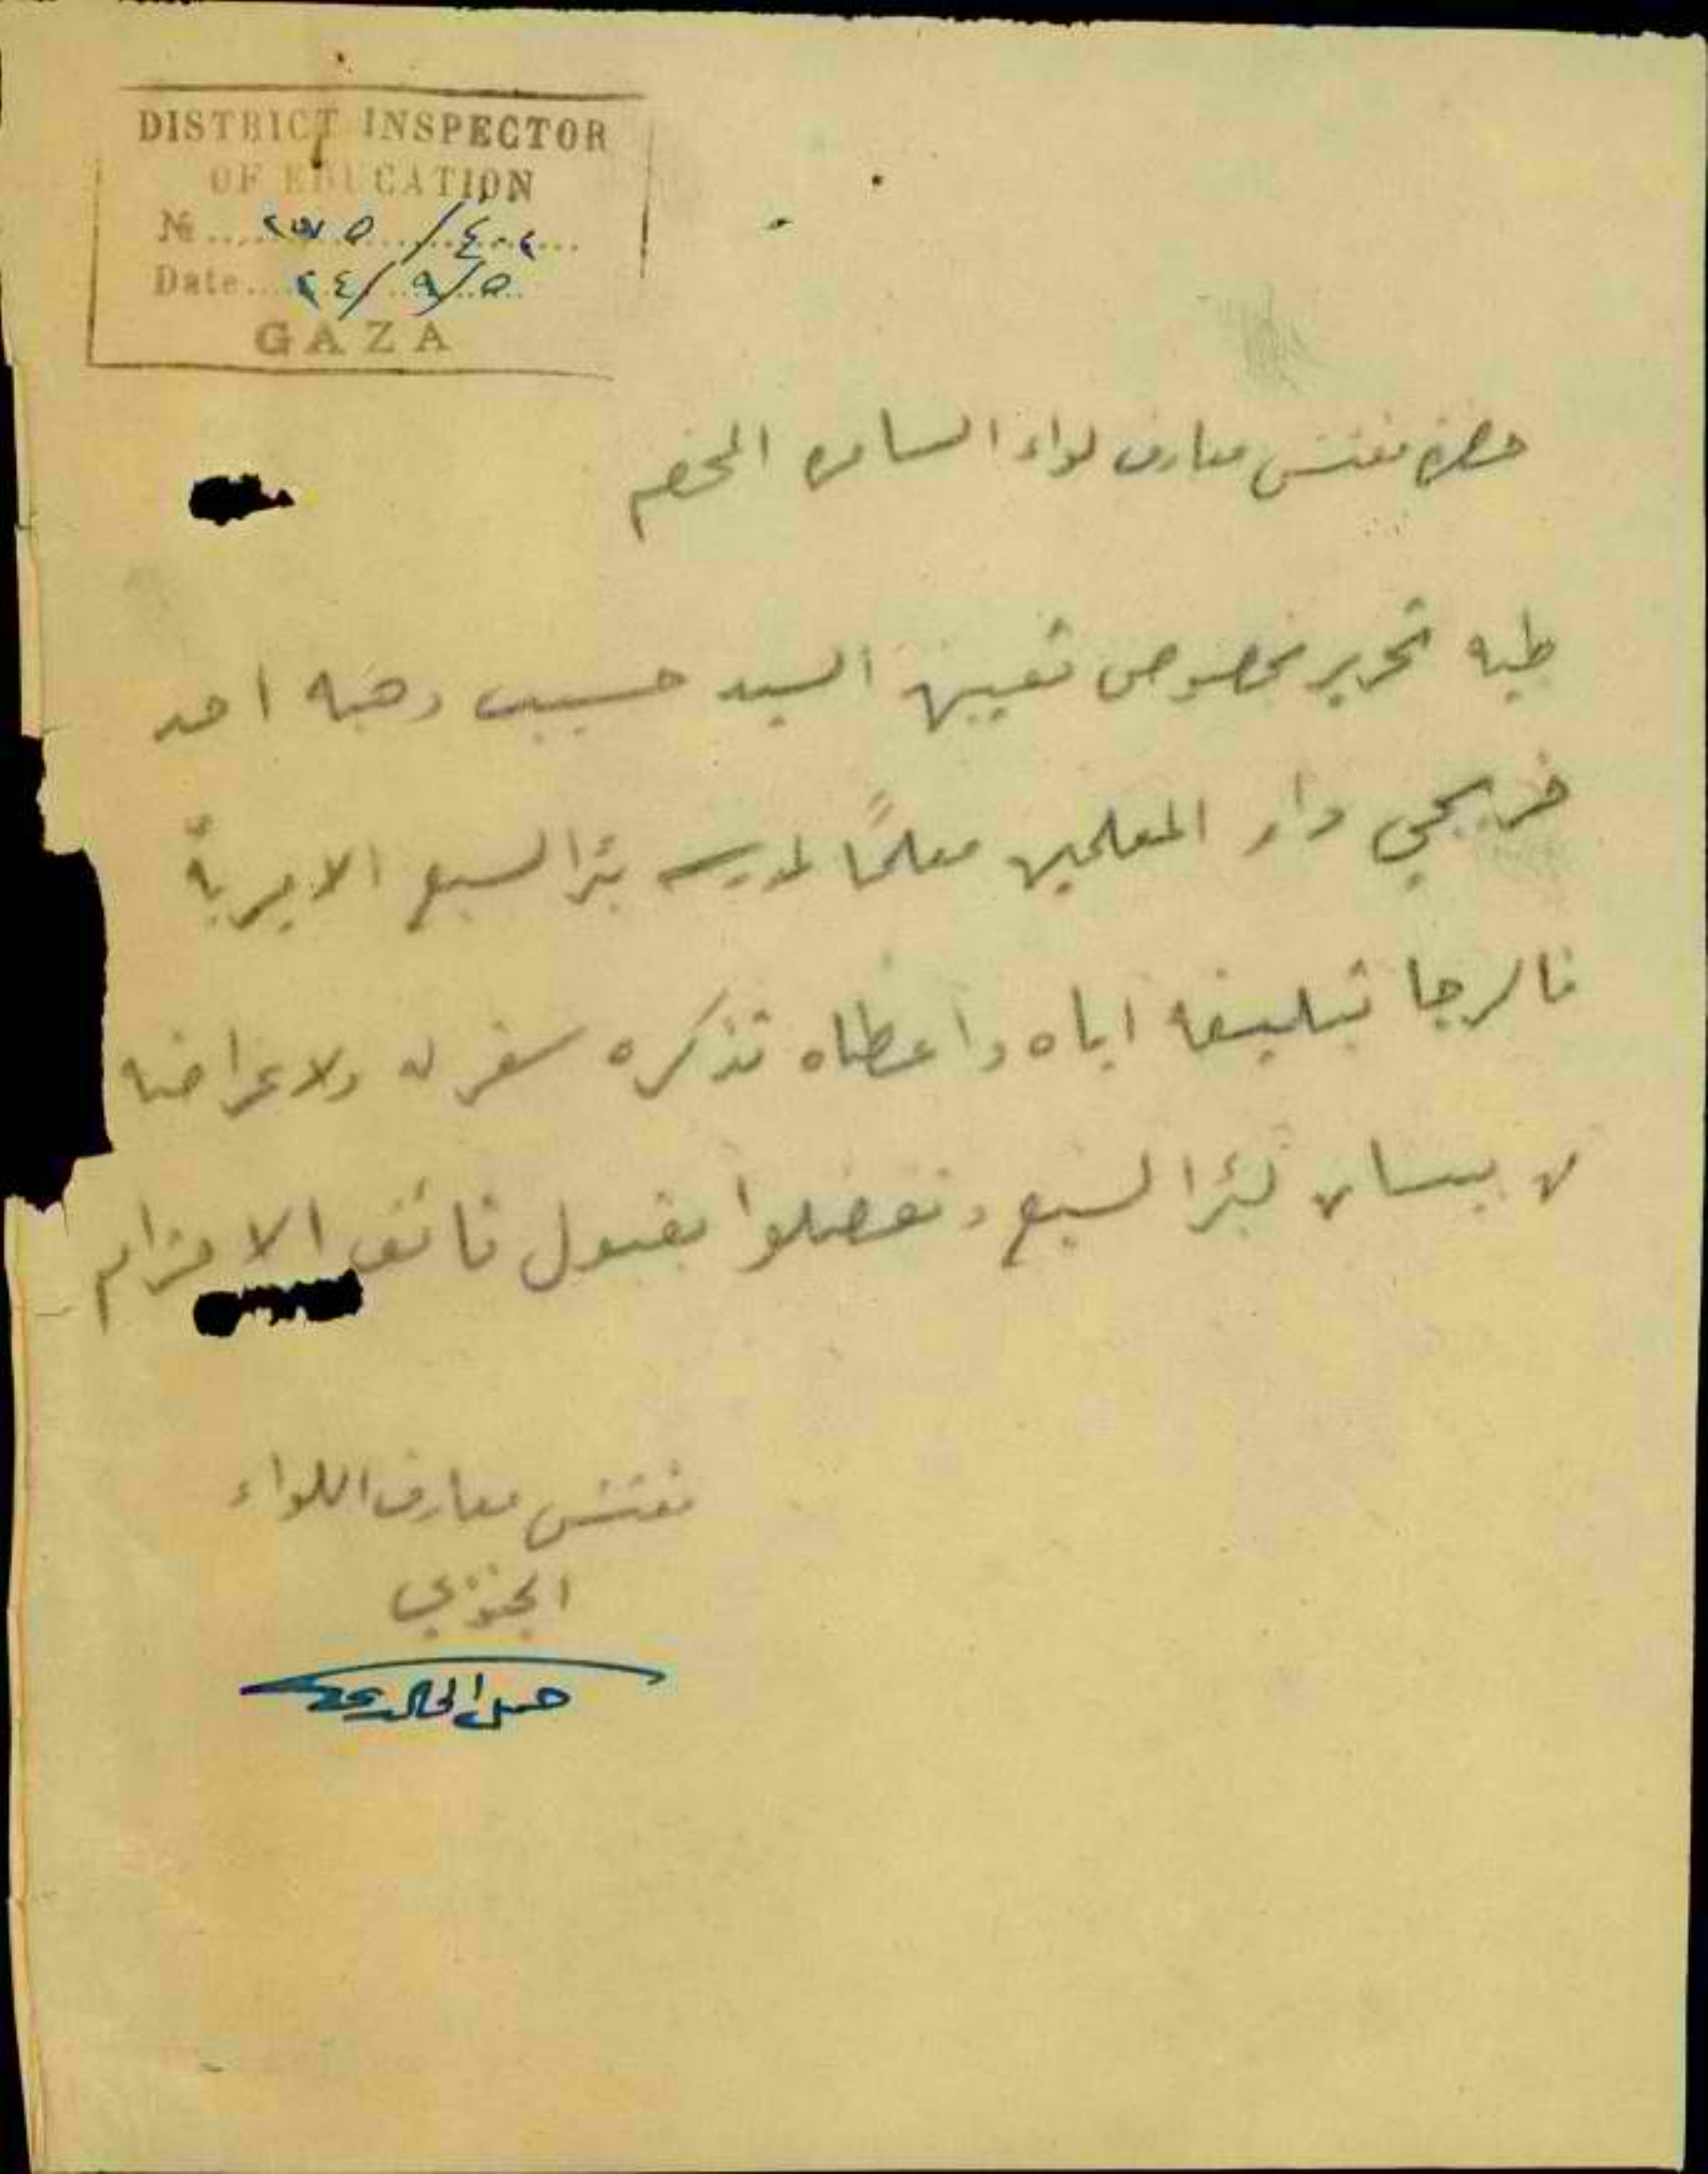 DISTRICT INSPECTOR
OF EDUCATION
№ ... / ٤٠٢
Date ٢٤/٩/٥
GAZA
حضرة مفتش معارف لواء السامره المحترم
طيه تحرير بخصوص تعيين السيد حسيب وهبه احد
خريجي دار المعلمين معلمًا لمدرسه بئر السبع الاميرية
فالرجا تبليغه اياه واعطاه تذكره سفر له ولاغراضه
من بيسان لبئر السبع وتفضلوا بقبول فائق الاحترام
مفتش معارف اللواء
الجنوبي